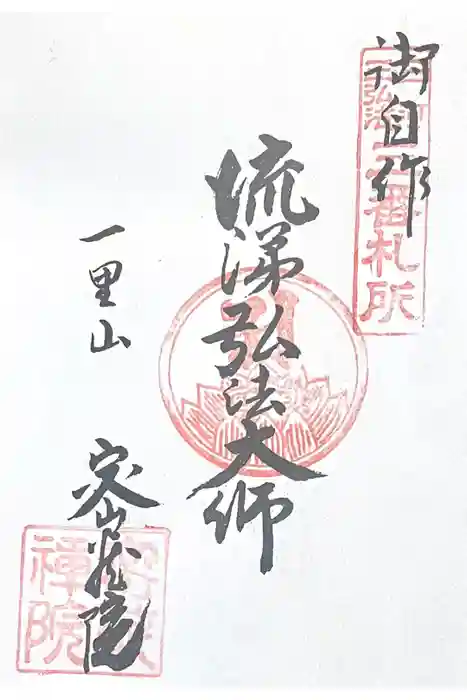 御自作
流涕弘法大師
一里山
密蔵院
番札所
禅院